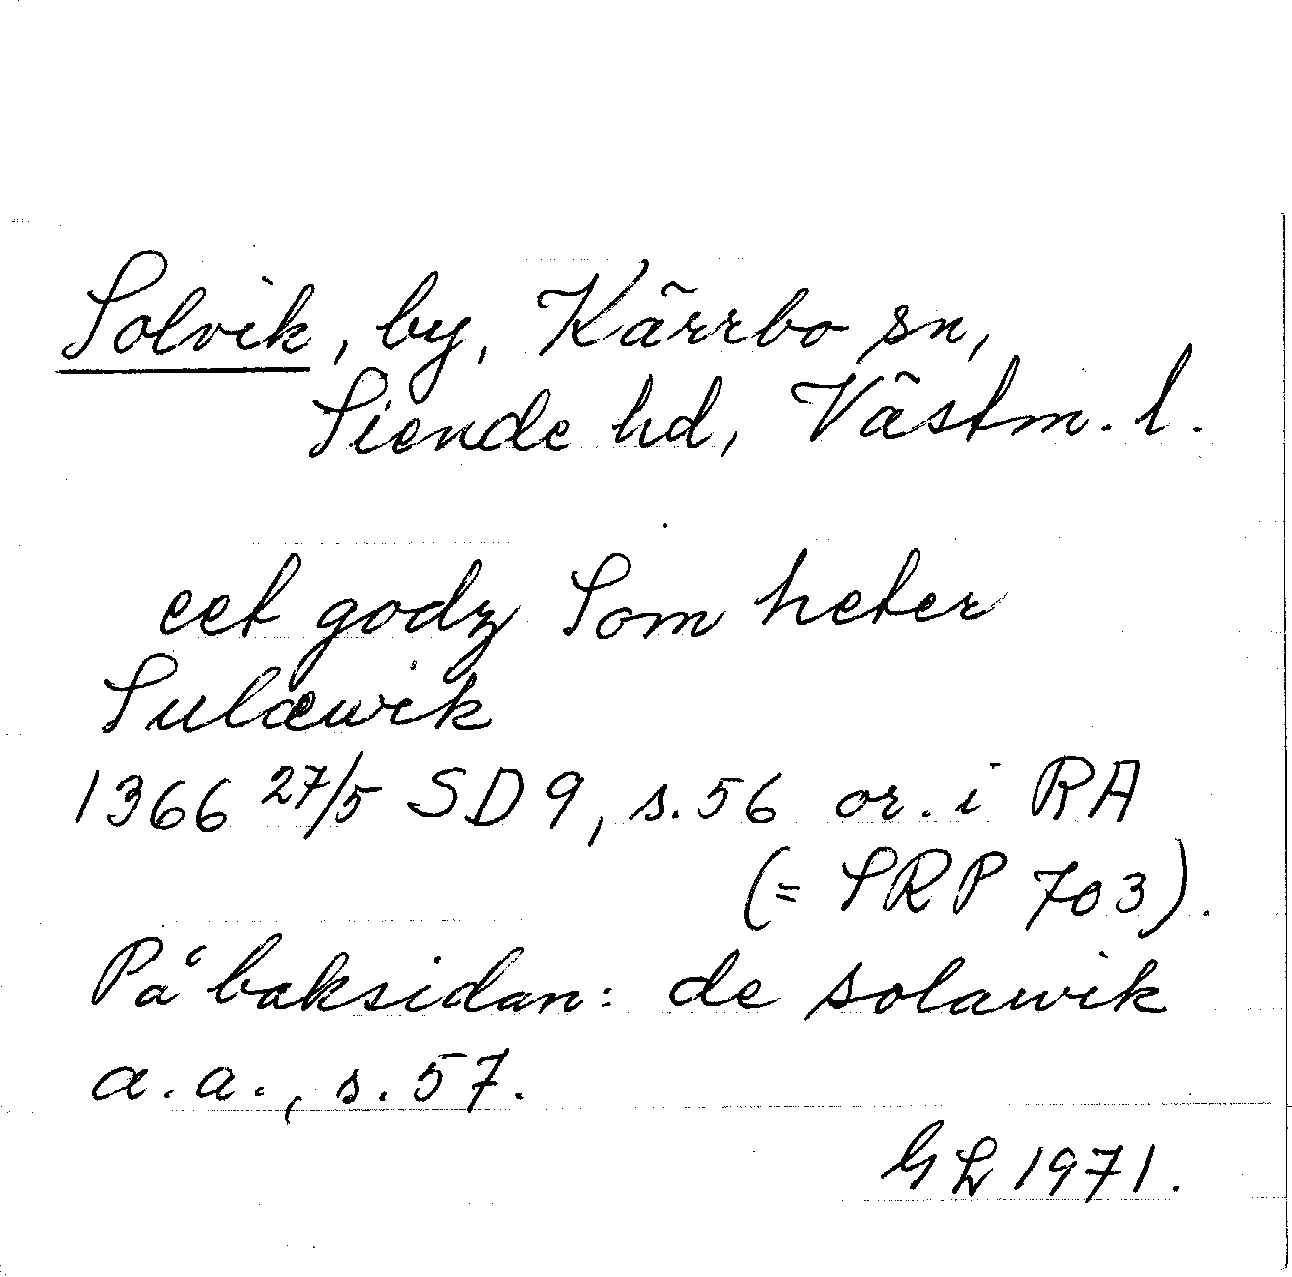 Solvik, by, Kärrbo sn,
Siende hd, Västm. l.
eet godz Som heter
Sulæwik
1366 27/5 SD 9, s. 56 or. i RA
(= SRP 703).
På baksidan: de solawik
a. a., s. 57.
GL 1971.